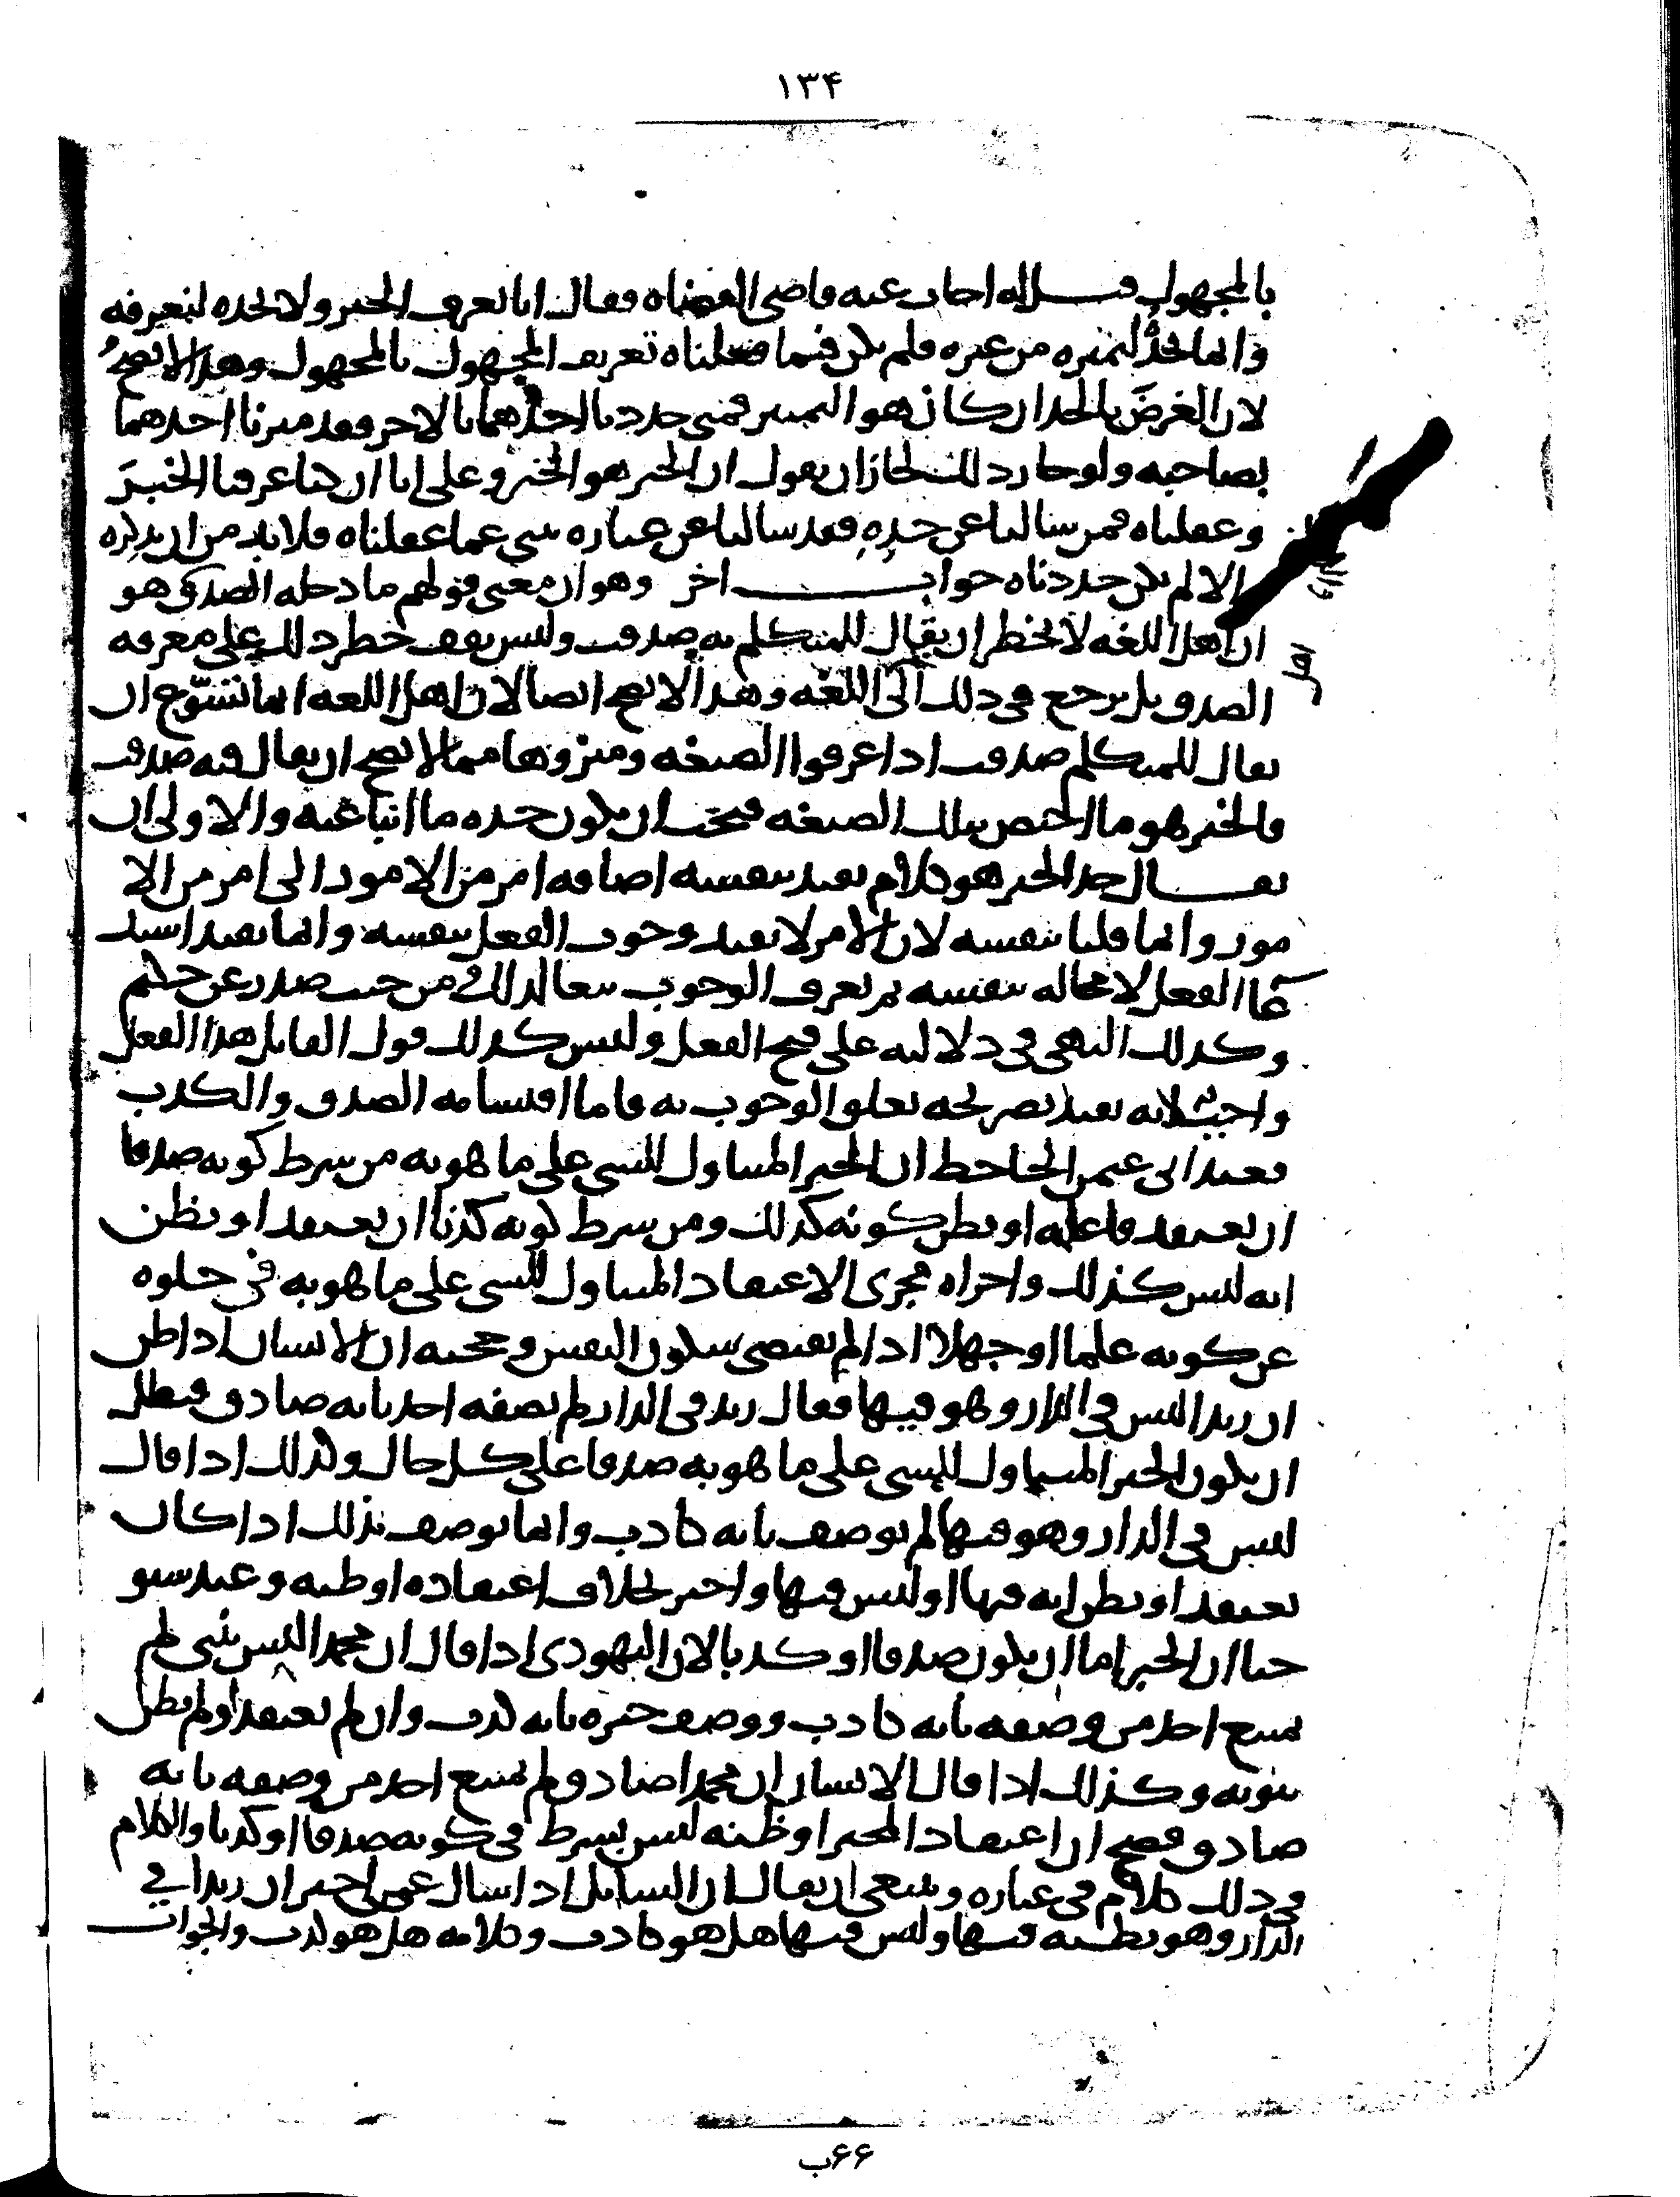 ١٣۴
بالمجهول قيل له اجاب عنه قاضي القضاه فقال انا نعرف الخبر ولا نحده لنعرفه
وانما نحدُّ لنميزه من غيره فلم يكن فيما فعلناه تعريف المجهول بالمجهول وهذا لا يصحُّ
لان الغرضَ بالحد ان كان هو التمييز فمتى حددنا احدهما بالاخر فقد ميزنا احدهما
بصاحبه ولو جاز ذلك لجاز ان يقول ان الخبر هو الخبر وعلى انا ان كنا عرفنا الخبرَ
وعقلناه فمن سالنا عن حدِهِ فقد سالنا عن عباره تنبي عما عقلناه فلا بد من ان نذكره
والا لم نكن حددناه جواب اخر وهو ان معنى قولهم ما دخله الصدق هو
ان اهل اللغه لا تحظر ان يقال للمتكلم به صدقت وليس يقف حظر ذلك على معرفه
الصدق بل يرجع في ذلك الى اللغه وهذا لا يصح ايضا لان اهل اللغه انما تسوّغ ان
يقال للمتكلم صدقت اذا عرفوا الصيغه وميزوها مما لا يصح ان يقال فيه صدقت
فالخبر هو ما اختص بتلك الصيغه فيجب ان يكون حده ما انبا عنه والاولى ان
يقال حد الخبر هو كلام يفيد بنفسه اضافه امر من الامور الى امر من الا
مور وانما قلنا بنفسه لان الامر لا يفيد وجوب الفعل بنفسه وانما يفيد استد
عا الفعل لا محاله بنفسه ثم يعرف الوجوب تبعا لذلك من حيث صدر عن حكيم
وكذلك النهي في دلالته على قبح الفعل وليس كذلك قول القايل هذا الفعل
واجب لانه يفيد بصريحه تعلق الوجوب به فاما اقتسامه الصدق والكذب
فعند ابي عثمن الجاحظ ان الخبر المتناول للشي على ما هو به من شرط كونه صدقا
ان يعتقد فاعله او يظن كونه كذلك ومن شرط كونه كذبا ان يعتقد او يظن
انه ليس كذلك واجراه مجرى الاعتقاد المتناول للشي على ما هو به في خلوه
عن كونه علما او جهلا اذا لم يقتضي سكون النفس وحجته ان الانسان اذا ظن
ان زيدا ليس في الدار وهو فيها فقال زيد في الدار لم يصفه احد بانه صادق فبطل
ان يكون الخبر المتناول للشي على ما هو به صدقا على كل حال وكذلك اذا قال
ليس في الدار وهو فيها لم يوصف بانه كاذب وانما يوصف بذلك اذا كان
يعتقد او يظن انه فيها او ليس فيها واخبر بخلاف اعتقاده او ظنه وعند شيو
خنا ان الخبر اما ان يكون صدقا او كذبا لان اليهودي اذا قال ان محمدا ليس بنبي لم
يمتنع احد من وصفه بانه كاذب ووصف خبره بانه كذب وان لم يعتقد او لم يظن
نبوته وكذلك اذا قال الانسان ان محمدا صادق لم يمتنع احد من وصفه بانه
صادق فصح ان اعتقاد المخبر او ظنه ليس بشرط في كونه صدقا او كذبا والكلام
في ذلك كلام في عباره وينبغي ان يقال ان السايل اذا سال عمن اخبر ان زيدا في
الدار وهو يظنه فيها وليس فيها هل هو كاذب وكلامه هل هو كذب والجواب
۶۶ب